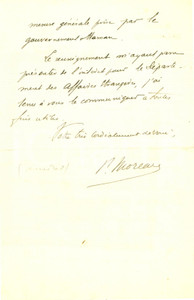 mesure générale prise par le
gouvernement
Ce renseignement m'ayant paru
présenter de l'intérêt pour le départe-
ment des Affaires étrangères, j'ai
tenu à vous le communiquer à toutes
fins utiles.
Votre très cordialement dévoué,
P. Moreau